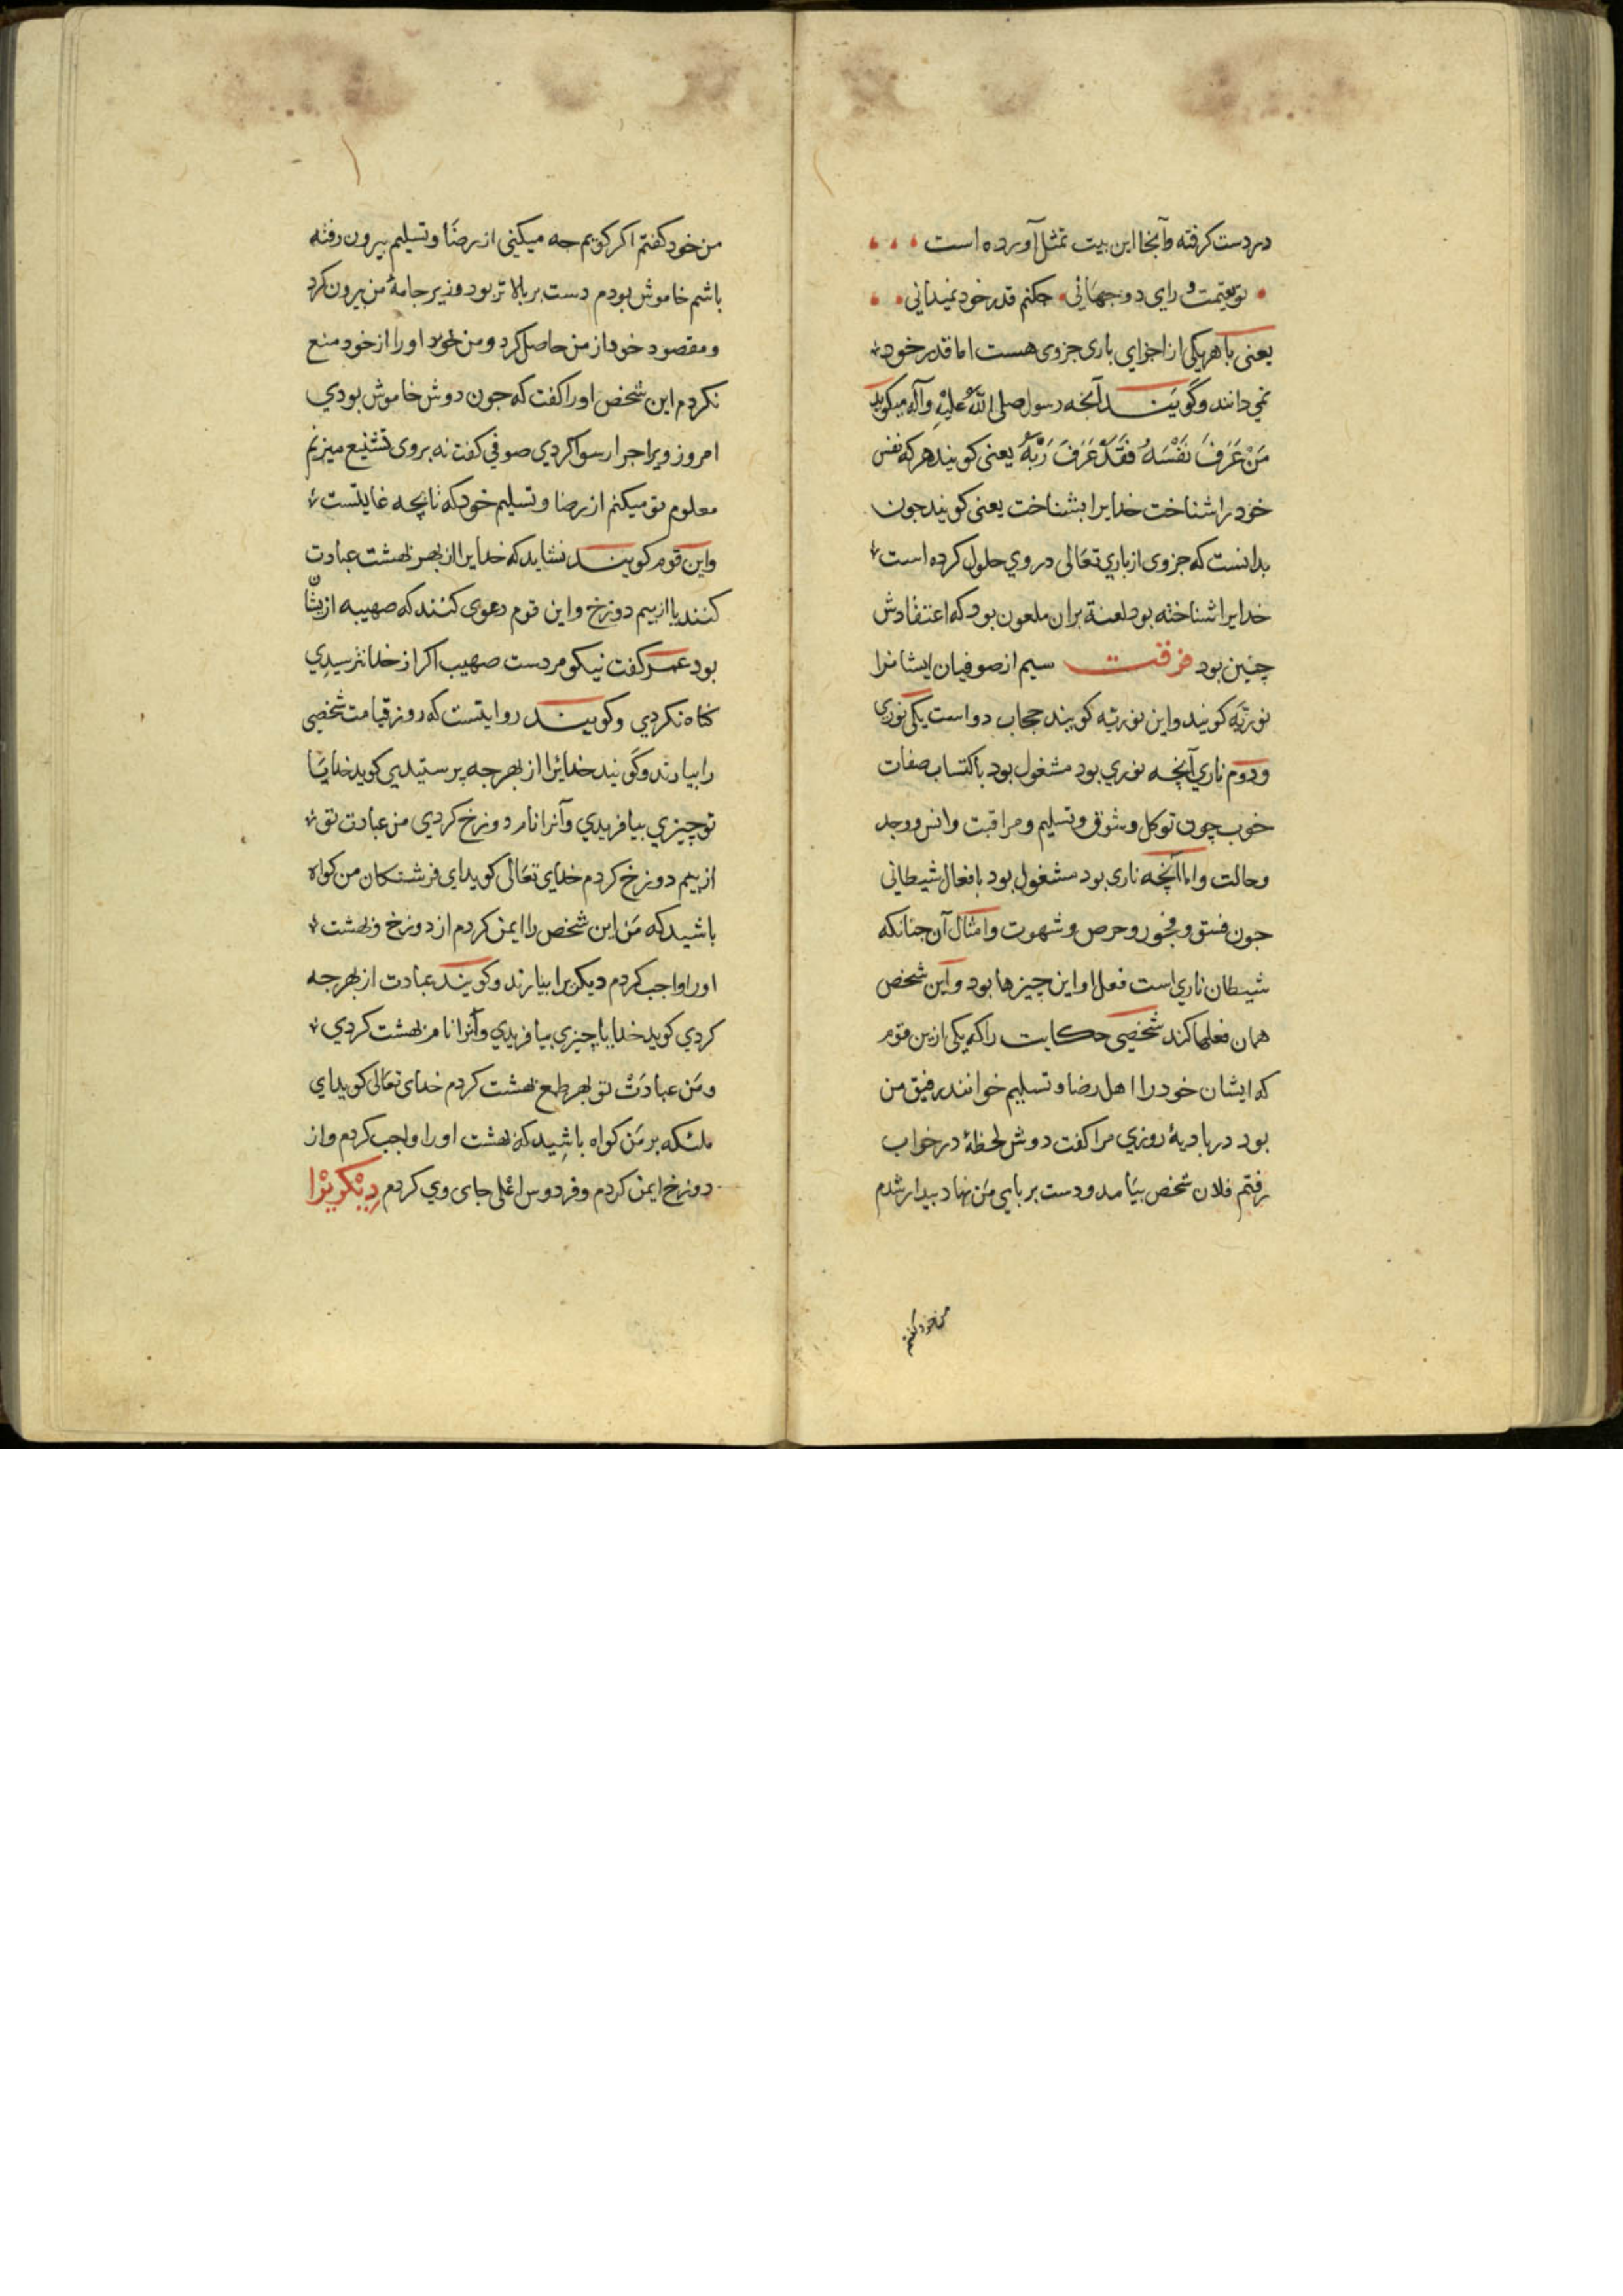 در دست کرفته وآنجا این بیت تمثل آورده است
تو بقیمت ورای دو جهانی چکنم قدر خود نمیدانی
یعنی با هر یکی از اجزای باری جزوی هست اما قدر خود
نمی دانند و گویند آنچه رسول صلی الله علیه وآله میکوید
مَنْ عَرَفَ نَفْسَهُ فَقَدْ عَرَفَ رَبَّهُ یعنی کویند هر که نفس
خود را شناخت خدایرا بشناخت یعنی کویند جون
بدانست که جزوی از باری تعالی در وی حلول کرده است
خدایرا شناخته بود لعنة بران ملعون بود که اعتقادش
چنین بود فرقت سیم از صوفیان ایشانرا
نوریّه کویند واین نوریّه کویند حجاب دو است یکی نوری
ودوم ناری آنچه نوری بود مشغول بود باکتساب صفات
خوب چون توکل و شوق و تسلیم و مراقبت وانس ووجد
وحالت واما آنچه ناری بود مشغول بود بافعال شیطانی
جون فسق و فجور و حرص و شهوت وامثال آن جنانکه
شیطان ناری است فعل او این چیزها بود واین شخص
همان فعلها کند شخصی حکایت را که یکی ازین قوم
که ایشان خود را اهل رضا و تسلیم خوانند رفیق من
بود در بادیهٔ روزی مرا کفت دوش لحظهٔ در خواب
رفتم فلان شخص بیامد ودست بر پای من نهاد بیدار شدم
من خود کفتم
من خود کفتم اکر کویم جه میکنی از رضا و تسلیم بیرون رفته
باشم خاموش بودم دست بر بالاتر بود وزیر جامهٔ من بیرون کرد
ومقصود خود از من حاصل کرد ومن خود او را از خود منع
نکردم این شخص او را کفت که جون دوش خاموش بودی
امروز ویرا جرا رسوا کردی صوفی کفت نه بروی تشنیع میزنم
معلوم تو میکنم از رضا و تسلیم خود که تا بچه غایتست
واین قوم کویند نشاید که خدایرا از بهر بهشت عبادت
کنند یا از بیم دوزخ واین قوم دعوی کنند که صهیبه ازیشان
بود عمر کفت نیکو مردست صهیب اکر از خدا نترسیدی
کناه نکردی وکویند روایتست که روز قیامت شخصی
را بیارند وگویند خدایرا از بهر جه پرستیدی کوید خدایا
تو چیزی بیافریدی وآنرا نام دوزخ کردی من عبادت تو
از بیم دوزخ کردم خدای تعالی کوید ای فرشتکان من کواه
باشید که مَن این شخص را ایمن کردم از دوزخ وبهشت
او را واجب کردم دیکریرا بیارند وکویند عبادت از بهر جه
کردی کوید خدایا چیزی بیافریدی وآنرا نام بهشت کردی
ومَن عبادَتْ تو بهر طمع بهشت کردم خدای تعالی کوید ای
ملئکه بر مَن کواه باشید که بهشت او را واجب کردم واز
دوزخ ایمن کردم وفردوس اعلی جای وی کردم دیکریرا